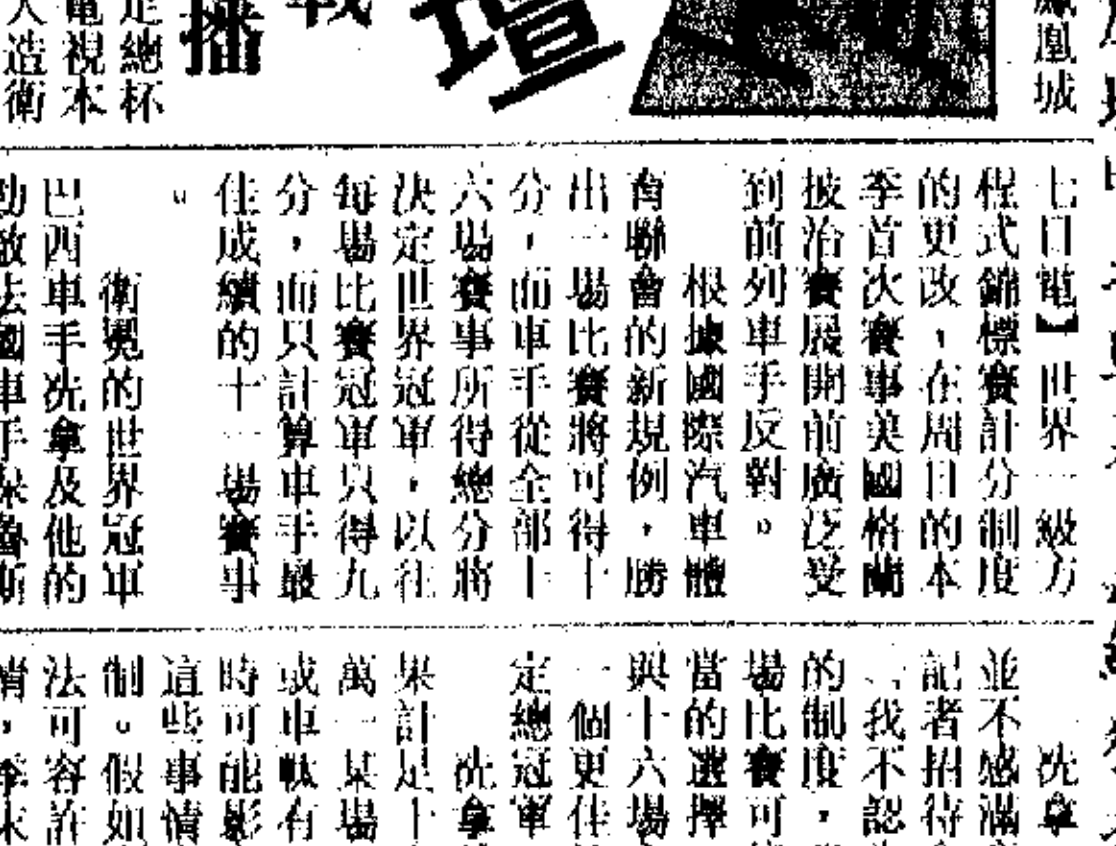 鳳凰城
壇
戰
播
足總杯
電視本
人造衛
七日電】世界一級方
程式錦標賽計分制度
的更改，在周日的本
季首次賽事美國格蘭
披治賽展開前廣泛受
到前列車手反對。
根據國際汽車體
育聯會的新規例，勝
出一場比賽將可得十
分，而車手從全部十
六場賽事所得總分將
決定世界冠軍，以往
每場比賽冠軍只得九
分，而只計算車手最
佳成績的十一場賽事
。
衛冕的世界冠軍
巴西車手冼拿及他的
勁敵法國車手保魯斯
冼拿
並不感滿
記者招待
「我不認
的制度，
場比賽可
當的選擇
與十六場
一個更佳
定總冠軍
冼拿
果計足十
萬一某場
或車軚有
時可能影
這些事情
制。假如
法可容許
，季末